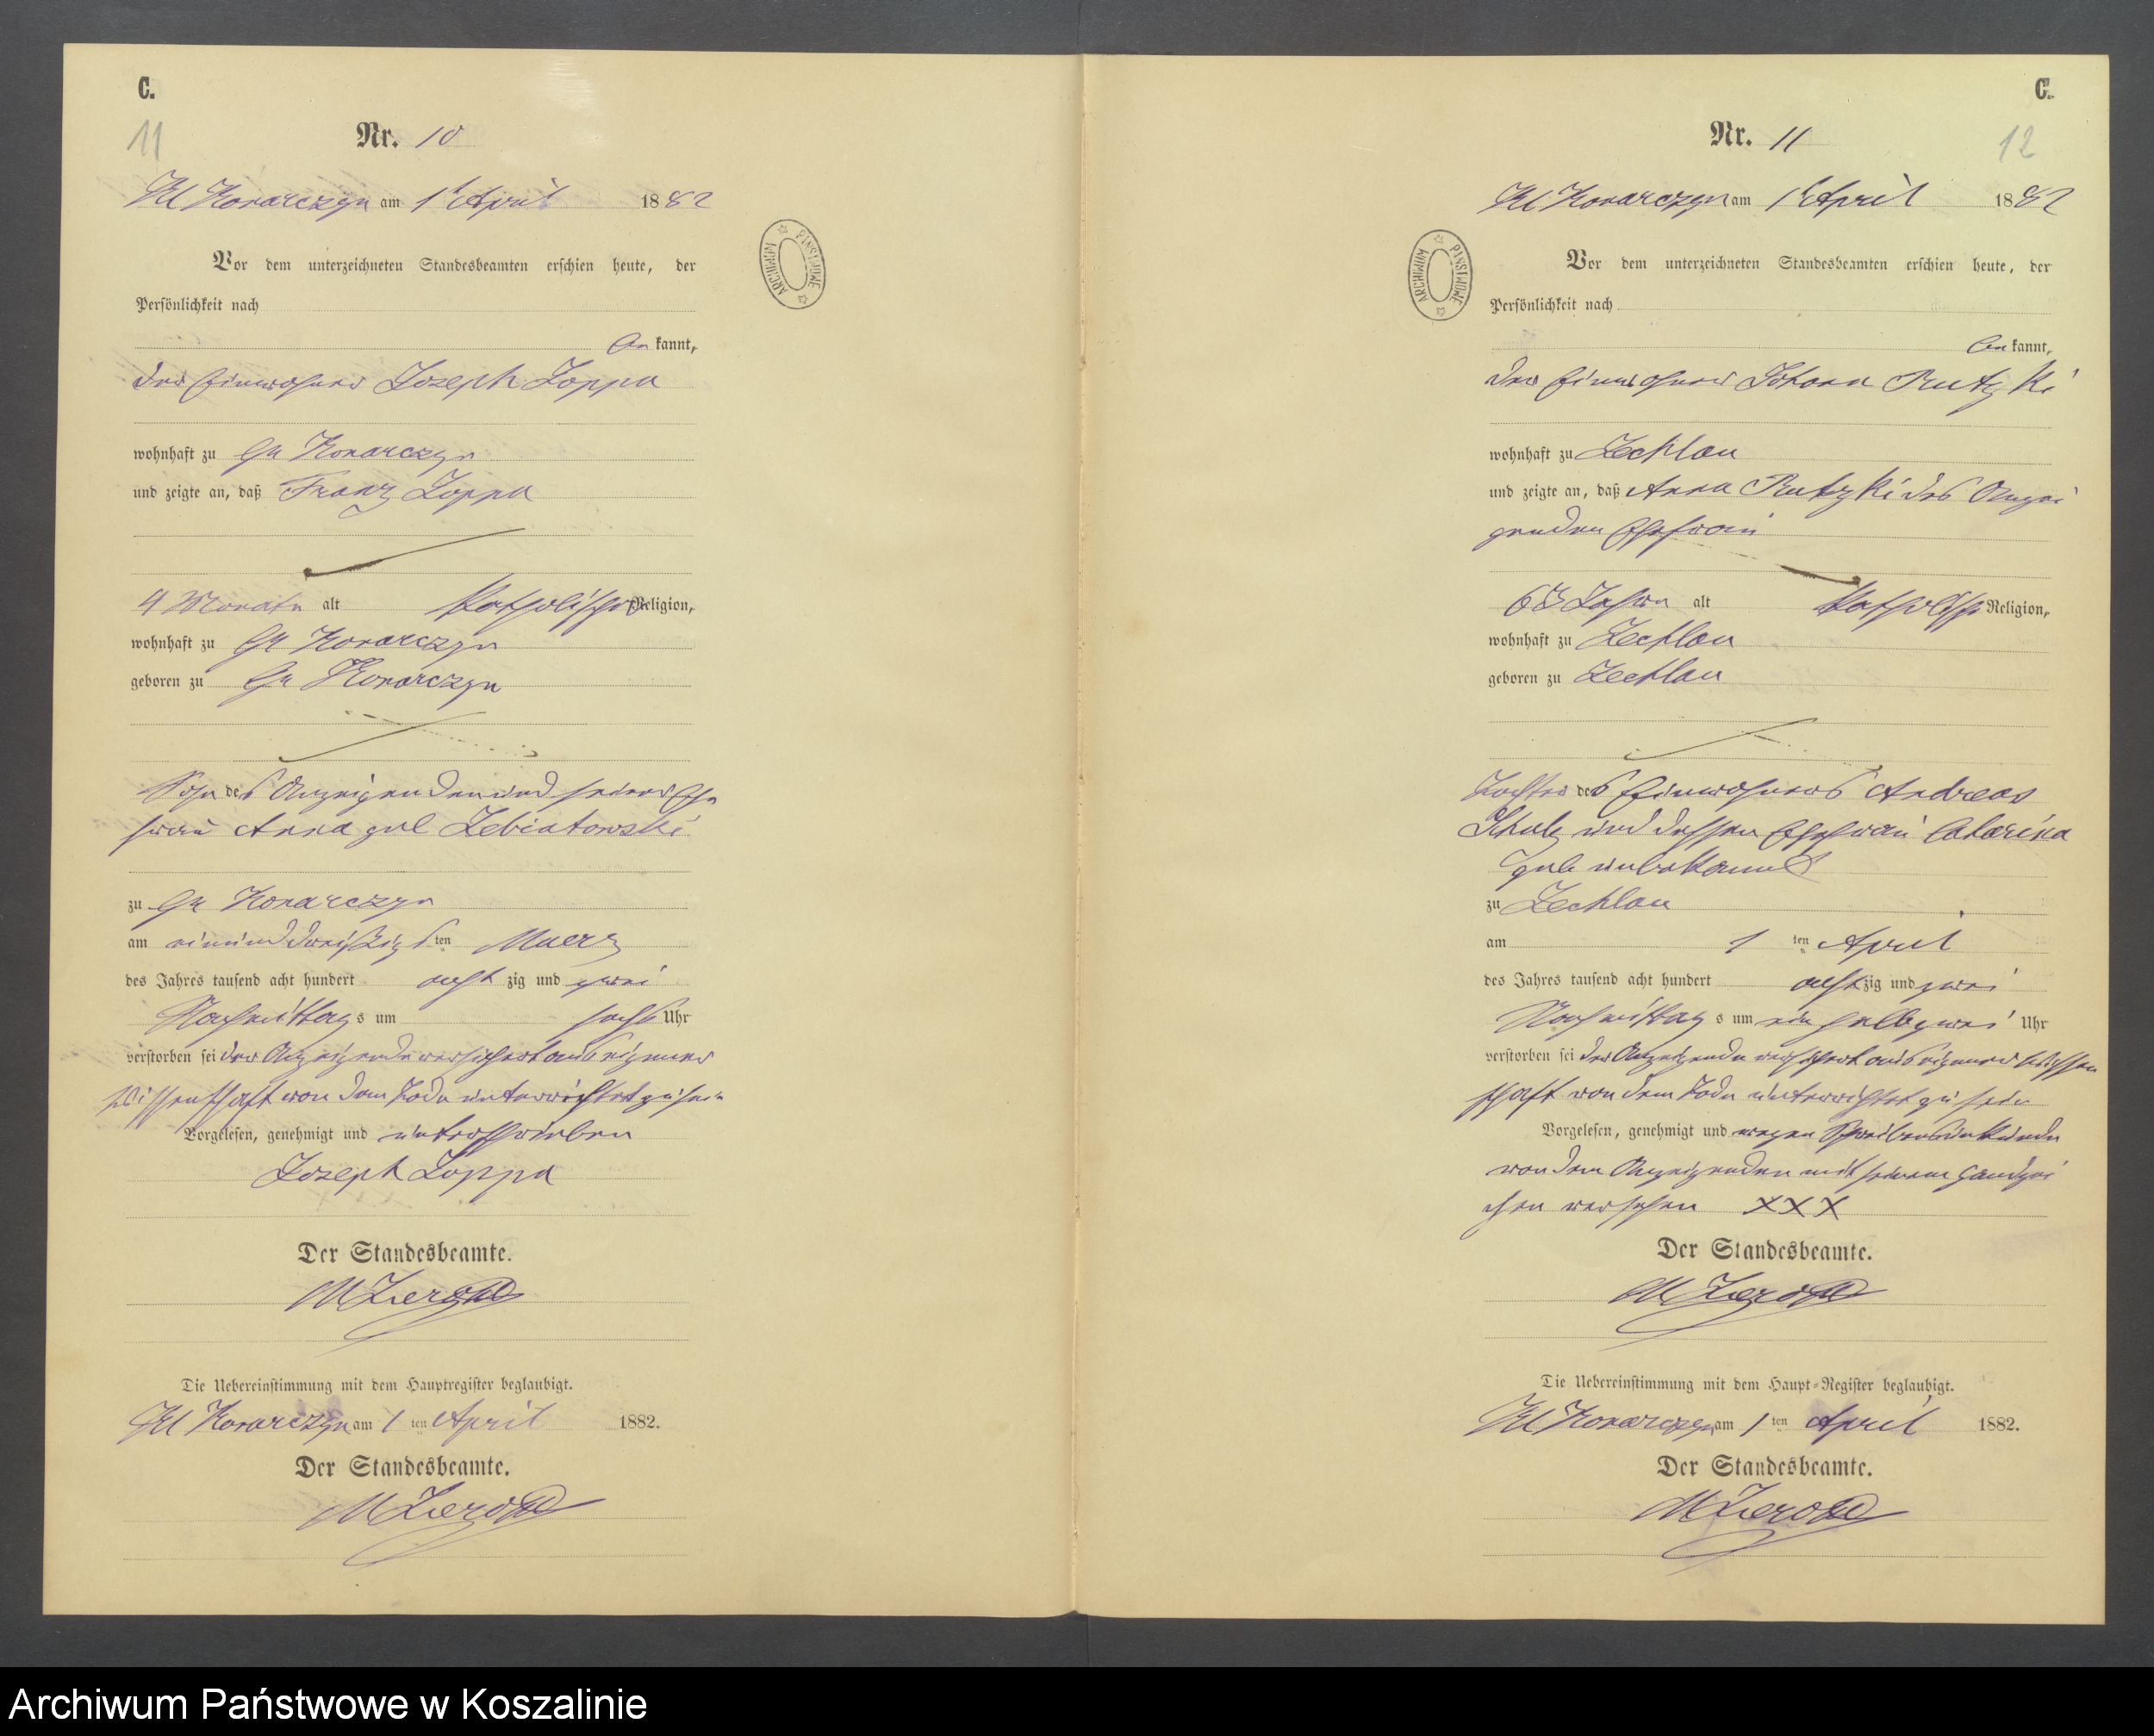 C.
11
Nr. 10
Kl Konarczyn am 1t April 1882
Vor dem unterzeichneten Standesbeamten erschien heute, der
Persönlichkeit nach
be kannt,
der Einwohner Joseph Loppa
wohnhaft zu Gr Konarczyn
und zeigte an, daß Franz Loppa
4 Monate alt katholischer Religion,
wohnhaft zu Gr Konarczyn
geboren zu Gr Konarczyn
Sohn des Anzeigenden und seiner Ehe
frau Anna geb Zebiatowski
zu Gr Konarczyn
am einunddreißigsten Maerz
des Jahres tausend acht hundert acht zig und zwei
Nachmittags um sechs Uhr
verstorben sei der Anzeigende versichert aus eigener
Wissenschaft von dem Tode unterrichtet zu sein
Vorgelesen, genehmigt und unterschrieben
Joseph Loppa
Der Standesbeamte.
Die Uebereinstimmung mit dem Hauptregister beglaubigt.
Kl Konarczyn am 1 ten April 1882.
Der Standesbeamte.
C.
12
Nr. 11
Kl Konarczyn am 1t April 1882
Vor dem unterzeichneten Standesbeamten erschien heute, der
Persönlichkeit nach
be kannt,
der Einwohner Johann Rutzki
wohnhaft zu Zechlau
und zeigte an, daß Anna Rutzki des Anzei
genden Ehefrau
Jahre alt katholisch Religion,
wohnhaft zu Zechlau
geboren zu Zechlau
Tochter des Einwohners Andreas
Schulz und dessen Ehefrau Catarina
geb unbekannt
zu Zechlau
am 1 ten April
des Jahres tausend acht hundert achtzig und zwei
Nachmittags um ein halb zwei Uhr
verstorben sei der Anzeigende versichert aus eigener Wissen
schaft von dem Tode unterrichtet zu sein
Vorgelesen, genehmigt und wegen Schreibensunkunde
von dem Anzeigenden mit seinem Handzei
chen versehen XXX
Der Standesbeamte.
Die Uebereinstimmung mit dem Haupt-Register beglaubigt.
Kl Konarczyn am 1 ten April 1882.
Der Standesbeamte.
ARCHIWUM PAŃSTWOWE
ARCHIWUM PAŃSTWOWE
Archiwum Państwowe w Koszalinie